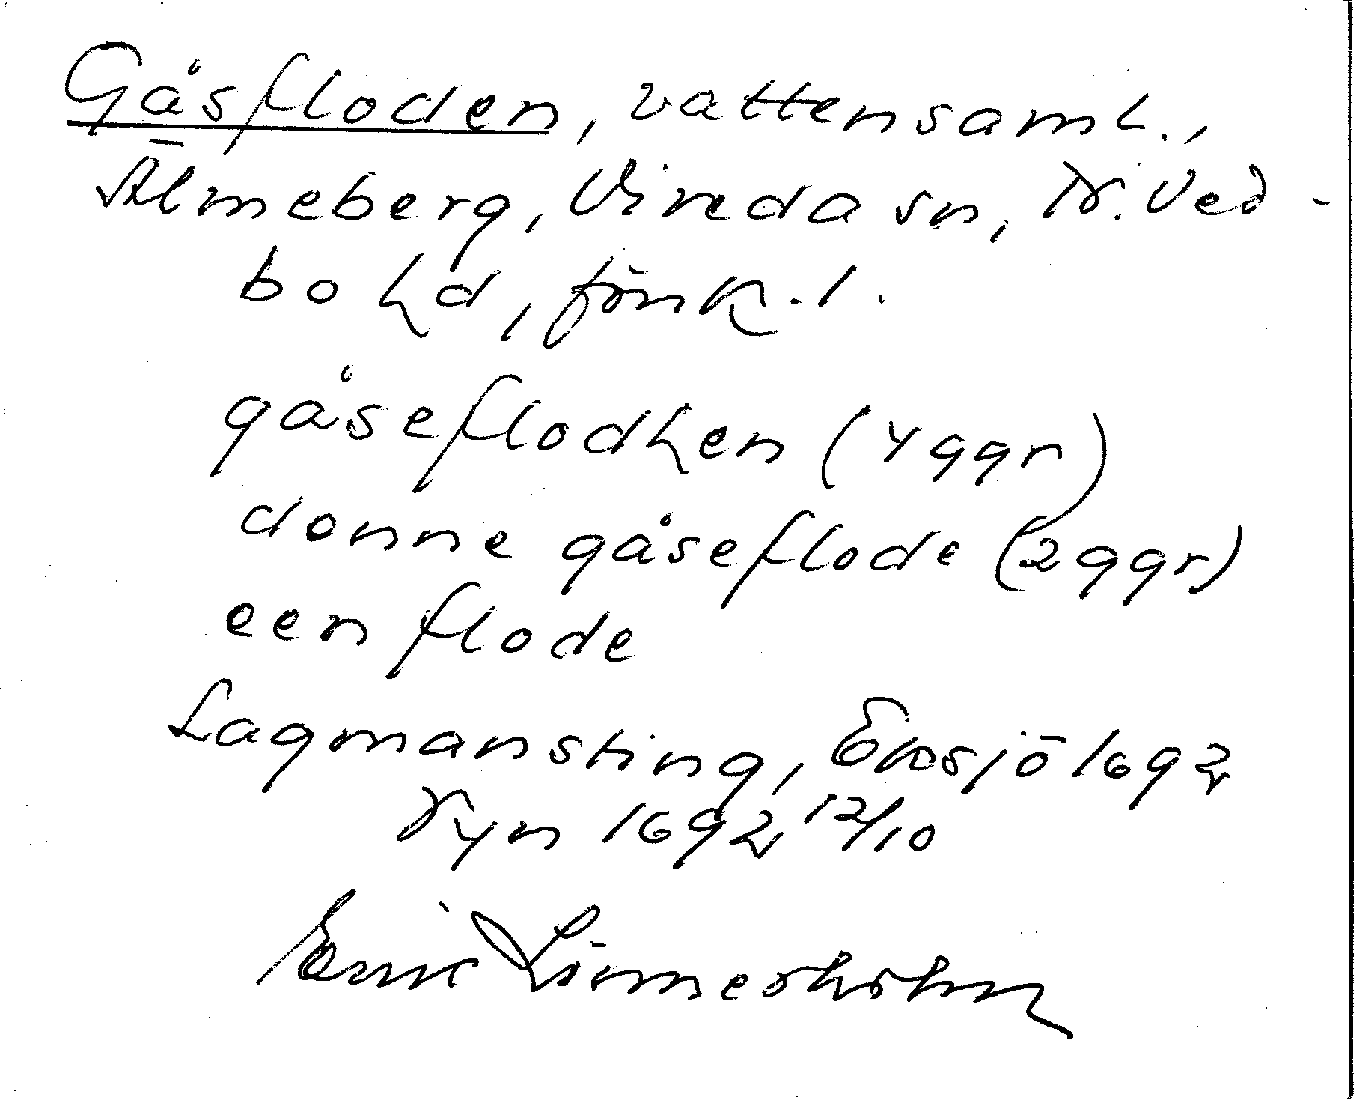 Gåsfloden, vattensaml.,
Älmeberg, Vireda sn, N. Ved-
bo hd, Jönk. l.
gåseflodhen (4 ggr)
donne gåseflode (2 ggr)
een flode
Lagmansting, Eksjö 1692
Syn 1692 12/10
Eric Linnerholm